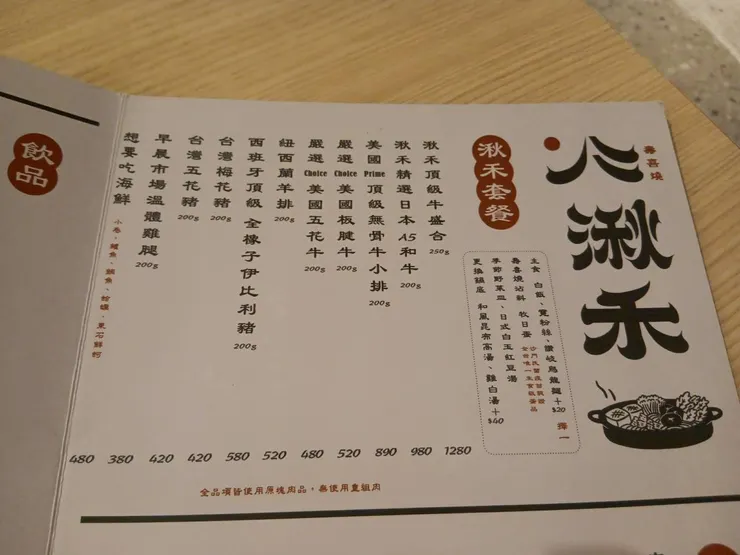 壽喜燒
心湫禾
湫禾套餐
主食 白飯、寬粉絲、讚岐烏龍麵+$20 擇一
壽喜燒沾料 牧日蛋
季節野菜皿、日式白玉紅豆湯
更換鍋底 和風昆布高湯、雞白湯+$40
湫禾頂級牛盛合 250g 1280
湫禾精選日本A5和牛 200g 980
美國Prime頂級無骨牛小排 200g 890
嚴選Choice美國板腱牛 200g 520
嚴選Choice美國五花牛 200g 480
紐西蘭羊排 200g 520
西班牙頂級全橡子伊比利豬 200g 580
台灣梅花豬 200g 420
台灣五花豬 200g 420
早晨市場溫體雞腿 200g 380
想要吃海鮮 小卷、鱸魚、鯛魚、蛤蠣、東石鮮蚵 480
全品項皆使用原塊肉品,無使用重組肉
飲品